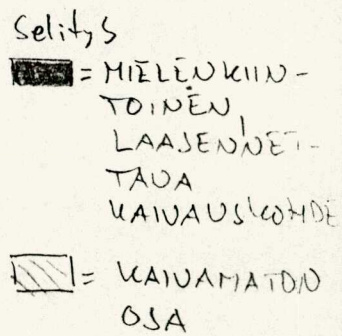 Selitys
= MIELENKIIN-
TOINEN,
LAAJENNET-
TAVA
KAIVAUSKOHDE
= KAIVAMATON
OSA